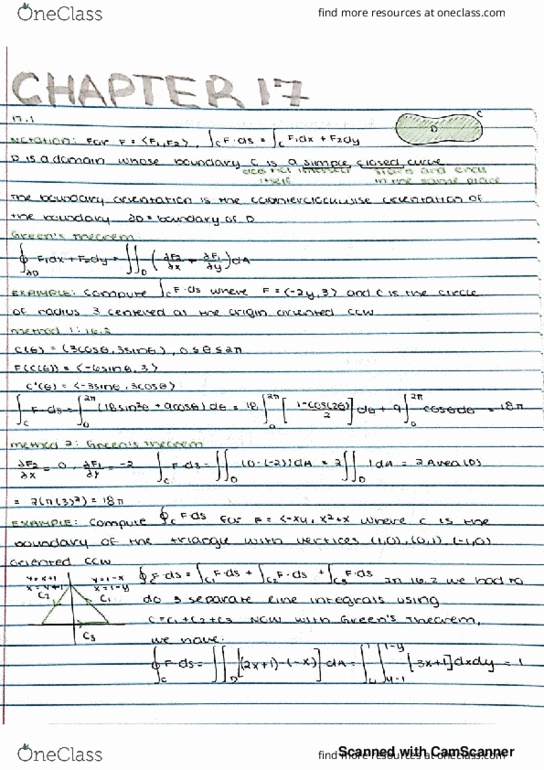 OneClass
find more resources at oneclass.com
CHAPTER 17
17.1
NOTATION: For F = <F₁,F₂>, ∫_C F·ds = ∫_C F₁dx + F₂dy
D
C
D is a domain whose boundary C is a simple, closed curve
does not intersect itself
starts and ends in the same place
The boundary orientation is the counterclockwise orientation of
the boundary ∂D = boundary of D
Green's Theorem
∮_∂D F₁dx + F₂dy = ∬_D (∂F₂/∂x - ∂F₁/∂y)dA
EXAMPLE: Compute ∫_C F·ds where F = <-2y,3> and C is the circle
of radius 3 centered as the origin oriented CCW
Method 1: 16.2
C(θ) = (3cosθ, 3sinθ), 0≤θ≤2π
F(C(θ)) = <-6sinθ, 3>
C'(θ) = <-3sinθ, 3cosθ>
∫_C F·ds = ∫_0^2π (18sin²θ + 9cosθ)dθ = 18∫_0^2π [1-cos(2θ)/2]dθ + 9∫_0^2π cosθdθ = 18π
Method 2: Green's Theorem
∂F₂/∂x = 0, ∂F₁/∂y = -2 ∫_C F·ds = ∬_D (0-(-2))dA = 2∬_D 1dA = 2Area(D)
= 2(π(3)²) = 18π
EXAMPLE: Compute ∮_C F·ds for F = <-xy, x²+x where C is the
boundary of the triangle with vertices (1,0), (0,1), (-1,0)
oriented CCW
y=x+1
y=1-x
x=1-y
C₂
C₁
C₃
∮F·ds = ∫_C₁ F·ds + ∫_C₂ F·ds + ∫_C₃ F·ds In 16.2 we had to
do 3 separate line integrals using
C=C₁+C₂+C₃ Now with Green's Theorem,
we have:
∮_C F·ds = ∬_D [(2x+1)-(-x)]dA = ∫_0^1 ∫_y-1^1-y [3x+1]dxdy = 1
Scanned with CamScanner
OneClass
find more resources at oneclass.com